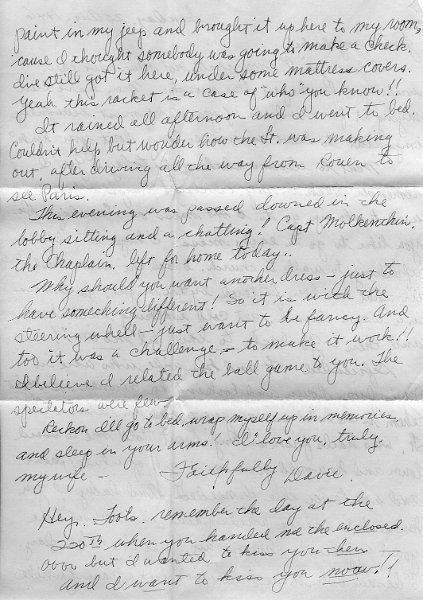 paint in my jeep and brought it up here to my room,
cause I thought somebody was going to make a check.
I've still got it here, under some mattress covers.
Yeah this racket is a case of "who" you know!!
It rained all afternoon and I went to bed.
Couldn't help but wonder how the Lt. was making
out, after driving all the way from Rouen to
see Paris.
This evening was passed downed in the
lobby sitting and a chatting! Capt Molkenthin,
the Chaplain, left for home today..
Why should you want another dress - just to
have something different! So it is with the
steering whell - just want to be fancy. And
too it was a challenge - to make it work!!
I believe I related the ball game to you. The
spectators were few -
Reckon I'll go to bed, wrap myself up in memories,
and sleep in your arms! I love you, truly,
my wife -
Faithfully
Dave.
Hey, Toots. remember the day at the
220th when you handed me the enclosed.
Oooo but I wanted to kiss you then -
and I want to kiss you now!!